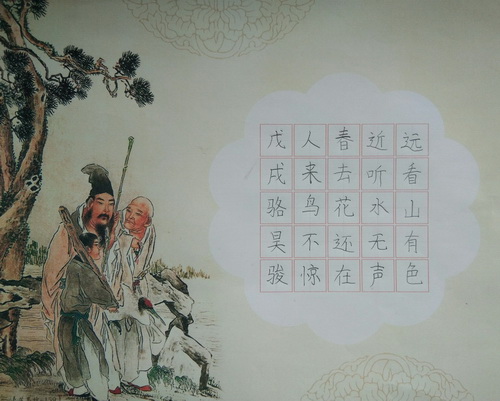 远看山有色
近听水无声
春去花还在
人来鸟不惊
戊戌骆昊骏